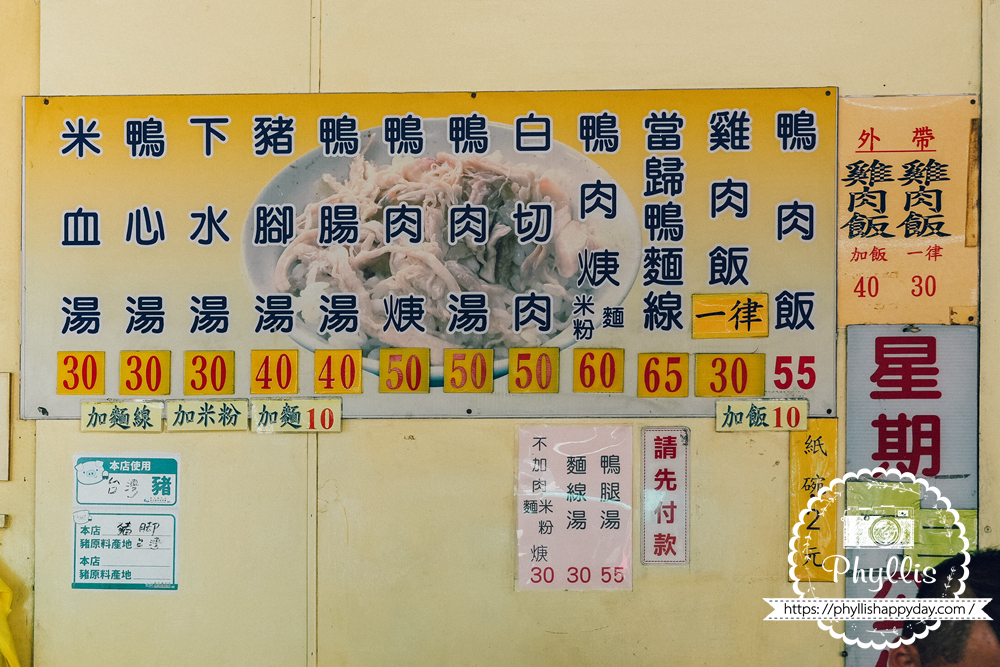 鴨肉飯 55
雞肉飯 一律 30
當歸鴨麵線 65
鴨肉焿 麵 米粉 60
白切肉 50
鴨肉湯 50
鴨肉焿 50
鴨腸湯 40
豬腳湯 40
下水湯 30
鴨心湯 30
米血湯 30
加麵線
加米粉
加麵10
加飯10
外帶
雞肉飯 一律 30
雞肉飯 加飯 40
星期
紙碗2元
請先付款
鴨腿湯 55
麵線湯 30
不加肉 米粉 麵 焿 30
本店使用
台灣
豬
本店 豬腳
豬原料產地 台灣
本店
豬原料產地
Phyllis
https://phyllishappyday.com/